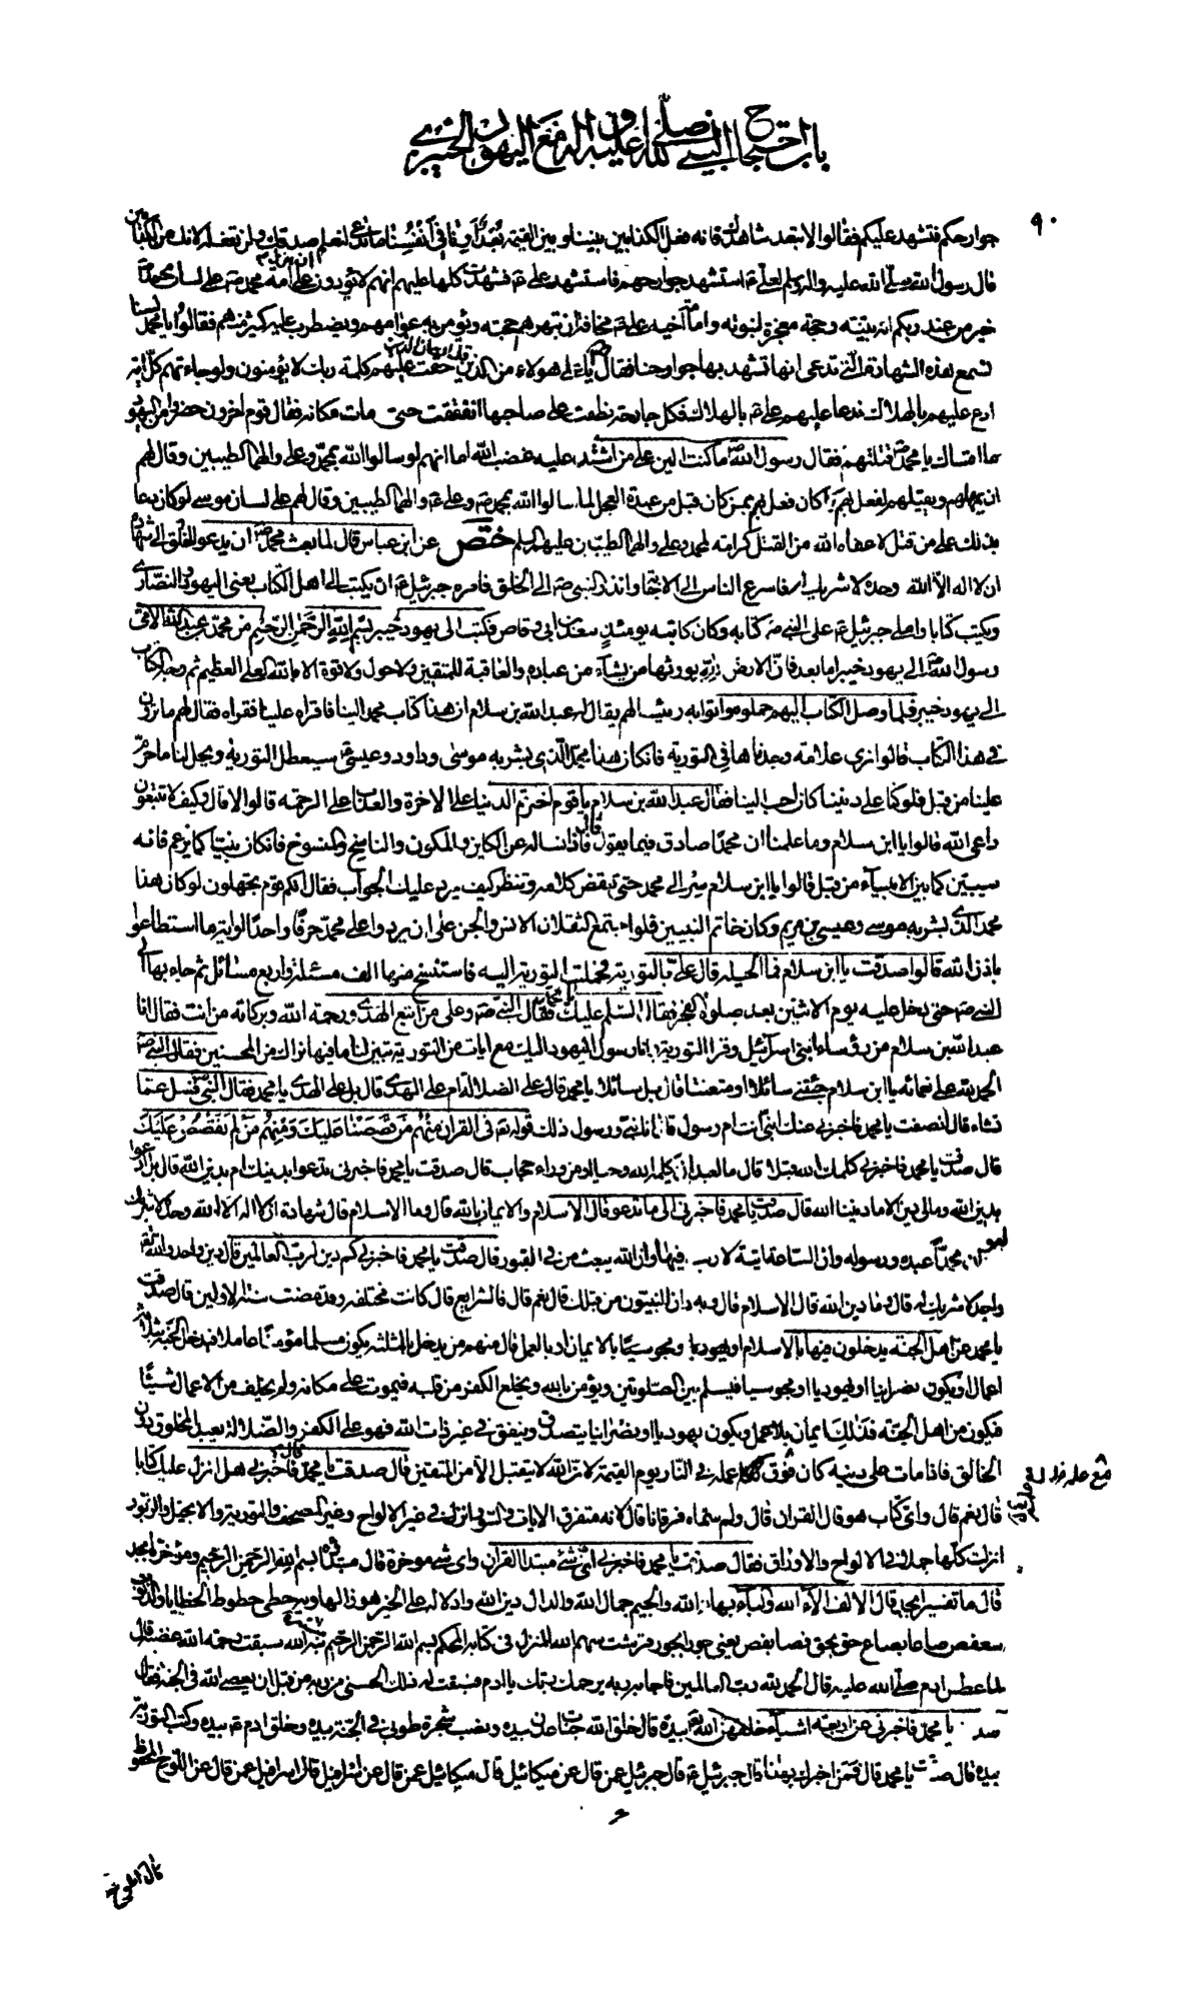 باب احتجاج النبي صلى الله عليه وآله مع اليهود الخيبري
٩٠
جوارحكم فتشهد عليكم فقالوا لا تبعد شاهدك فانه فعل الكذابين بيننا وبين القيمة بعد أو في أنفسنا ما تدعي لنعلم صدقك ولن تفعله لانك من الكذابين
قال رسول الله صلى الله عليه وآله وسلم لعلي ع استشهد جوارحهم فاستشهد علي ع فشهدت كلها عليهم انهم لا يودون ان ينزل على امة محمد ص على لسان محمد
خير من عند ربكم اية بينة وحجة معجزة لنبوته وامامة اخيه علي ع مخافة ان تبهرهم حجته ويؤمن به عوامهم ويضطرب عليه كثير منهم فقالوا يا محمد لسنا
نسمع هذه الشهادة التي تدعي انها تشهد بها جوارحنا فقال يا علي هؤلاء من الذين قال الله ان الذين حقت عليهم كلمة ربك لا يؤمنون ولو جاءتهم كل اية
ادع عليهم بالهلاك فدعا عليهم علي ع بالهلاك فكل جارحة نطقت على صاحبها انفتقت حتى مات مكانه فقال قوم اخرون حضروا من اليهود
ما اقساك يا محمد قتلتهم فقال رسول الله ص ما كنت الين على من اشتد عليه غضب الله اما انهم لو سالوا الله بمحمد وعلي والهما الطيبين
ان يمهلهم ويقيلهم لفعل بهم كما كان فعل بمن كان قبل من عبدة العجل لما سالوا الله بمحمد ص وعلي ع والهما الطيبين وقال لهم على لسان موسى لو كان دعا
بذلك على من قتل لاعفاه الله من القتل كرامة لمحمد وعلي والهما الطيبين عليهم السلم ختص عن ابن عباس قال لما بعث محمد ص ان يدعو الخلق الى شهادة
ان لا اله الا الله وحده لا شريك له فاسرع الناس الى الاجابة وانذر النبي ص الخلق فامره جبرئيل ع ان يكتب الى اهل الكتاب يعني اليهود والنصارى
ويكتب كتابا واملى جبرئيل ع على النبي ص كتابه وكان كاتبه يومئذ سعد بن ابي وقاص فكتب الى يهود خيبر بسم الله الرحمن الرحيم من محمد بن عبد الله الامي
رسول الله الى يهود خيبر اما بعد فان الارض لله يورثها من يشاء من عباده والعاقبة للمتقين ولا حول ولا قوة الا بالله العلي العظيم ثم وجه الكتاب
الى يهود خيبر فلما وصل الكتاب اليهم حملوه واتوا به رئيسا لهم يقال له عبد الله بن سلام ان هذا كتاب محمد الينا فاقراه علينا فقراه فقال لهم ما ترون
في هذا الكتاب قالوا نرى علامة وجدناها في التورية فان كان هذا محمد الذي بشر به موسى وداود وعيسى ع سيعطل التورية ويحل لنا ما حرم
علينا من قبل فلو كنا على ديننا كان احب الينا فقال عبد الله بن سلام يا قوم اخترتم الدنيا على الاخرة والعذاب على الرحمة قالوا لا قال وكيف لا تتبعون
داعي الله قالوا يا ابن سلام وما علمنا ان محمدا صادق فيما يقول قال فاذا نساله عن الكاين والمكون والناسخ والمنسوخ فان كان نبيا كما يزعم فانه
سيبين كما بين الانبياء من قبل قالوا يا ابن سلام سر الى محمد حتى تنقض كلامه وتنظر كيف يرد عليك الجواب فقال انكم قوم تجهلون لو كان هذا
محمد الذي بشر به موسى وعيسى بن مريم وكان خاتم النبيين فلو اجتمع الثقلان الانس والجن على ان يردوا على محمد حرفا واحدا او اية ما استطاعوا
باذن الله قالوا صدقت يا ابن سلام فما الحيلة قال علي بالتورية فحملت التورية اليه فاستنسخ منها الف مسئلة واربع مسائل ثم جاء بها الى
النبي ص حتى دخل عليه يوم الاثنين بعد صلوة الفجر فقال السلم عليك يا محمد فقال النبي ص وعلى من اتبع الهدى ورحمة الله وبركاته من انت فقال انا
عبد الله بن سلام من رؤساء بني اسرائيل وقرا التورية وانا رسول اليهود اليك مع ايات من التورية تبين لنا ما فيها نراك من المحسنين فقال النبي ص
الحمد لله على نعمائه يا ابن سلام جئتني سائلا او متعنتا قال بل سائلا يا محمد قال على الضلالة ام على الهدى قال بل على الهدى يا محمد فقال النبي فسل عما
تشاء قال انصفت يا محمد فاخبرني عنك انبي انت ام رسول قال انا نبي ورسول ذلك قوله تع في القران منهم من قصصنا عليك ومنهم من لم نقصص عليك
قال صدقت يا محمد فاخبرني كلمك الله قبلا قال ما لعبد ان يكلمه الله وحيا او من وراء حجاب قال صدقت يا محمد فاخبرني تدعو بدينك ام بدين الله قال بل ادعوا
بدين الله ومالي دين الا ما ديننا الله قال صدقت يا محمد فاخبرني الى ما تدعو قال الاسلام والايمان بالله قال وما الاسلام قال شهادة ان لا اله الا الله وحده لا شريك له
وان محمدا عبده ورسوله وان الساعة اتية لا ريب فيها وان الله يبعث من في القبور قال صدقت يا محمد فاخبرني كم دين لرب العالمين قال دين واحد والله تع
واحد لا شريك له قال وما دين الله قال الاسلام قال وبه دان النبيون من قبلك قال نعم قال فالشرايع قال كانت مختلفة وقد مضت سنة الاولين قال صدقت
يا محمد عن اهل الجنة يدخلون فيها بالاسلام او بالايمان او بالعمل قال منهم من يدخل بالثلثة يكون مسلما مؤمنا عاملا فيدخل الجنة بثلاثة
اعمال او يكون نصرانيا او يهوديا او مجوسيا فيسلم بين الصلوتين ويؤمن بالله ويخلع الكفر من قلبه فيموت على مكانه ولم يخلف من الاعمال شيئا
فيكون من اهل الجنة فذلك ايمان بلا عمل ويكون يهوديا او نصرانيا يتصدق وينفق في غير ذات الله فهو على الكفر والضلالة يعبد المخلوق دون
الخالق فاذا مات على دينه كان فوق عمله في النار يوم القيمة لان الله لا يتقبل الا من المتقين قال صدقت يا محمد قال فاخبرني هل انزل عليك كتابا
قال نعم قال واي كتاب هو قال القران قال ولم سماه فرقانا قال لانه متفرق الايات والسور انزل في غير الالواح وغير الصحف والتورية والانجيل والزبور
انزلت كلها جملة في الالواح والاوراق فقال صدقت يا محمد فاخبرني اي شئ مبتدا القران واي شئ موخره قال مبتداه بسم الله الرحمن الرحيم وموخره ابجد
قال ما تفسير ابجد قال الالف الاء الله والباء بهاء الله والجيم جمال الله والدال دين الله وادلاله على الخير هوز الهاوية حطي حطوط الخطايا والذنوب
سعفص صاعا بصاع حق بحق فصا بفص يعني جورا بجور قرشت سهم الله المنزل في كتابه المحكم بسم الله الرحمن الرحيم سنة الله سبقت رحمة الله غضبه قال
لما عطس ادم صلى الله عليه قال الحمد لله رب العالمين فاجابه ربه يرحمك ربك يا ادم فسبقت له ذلك الحسنى من ربه من قبل ان يعصي الله في الجنة فقال
صدقت يا محمد فاخبرني عن اربعة اشياء خلقهن الله تع بيده قال خلق الله جنات عدن بيده ونصب شجرة طوبى في الجنة بيده وخلق ادم ع بيده وكتب التورية
بيده قال صدقت يا محمد قال فمن اخبرك بهذا قال جبرئيل ع قال جبرئيل عن من قال عن ميكائيل قال ميكائيل عمن قال عن اسرافيل قال اسرافيل عمن قال عن اللوح المحفوظ
قال اللوح